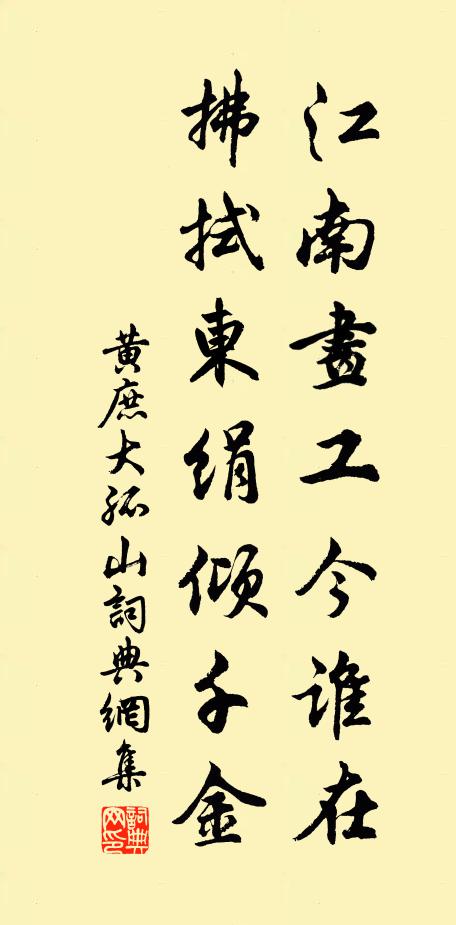 江南畫工今誰在
拂拭東絹傾千金
黄庶大孤山詞典網集
詞典网印